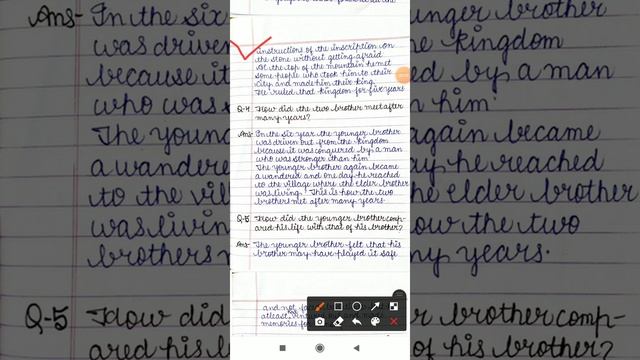 instructions of the inscription on
the stone without getting afraid
At the top of the mountain he met
some people who took him to their
city and made him their king.
He ruled that kingdom for five years
Q-4 How did the two brother meet after
many years?
Ans- In the six year the younger brother
was driven out from the kingdom
because it was conquered by a man
who was stronger than him
The younger brother again became
a wandered and one day he reached
to the village where the elder brother
was living. This is how the two
brothers met after many years.
Q-5 How did the younger brother comp-
ared his life with that of his brother?
Ans- The younger brother felt that his
brother may have played it safe
and not
atleast
memories